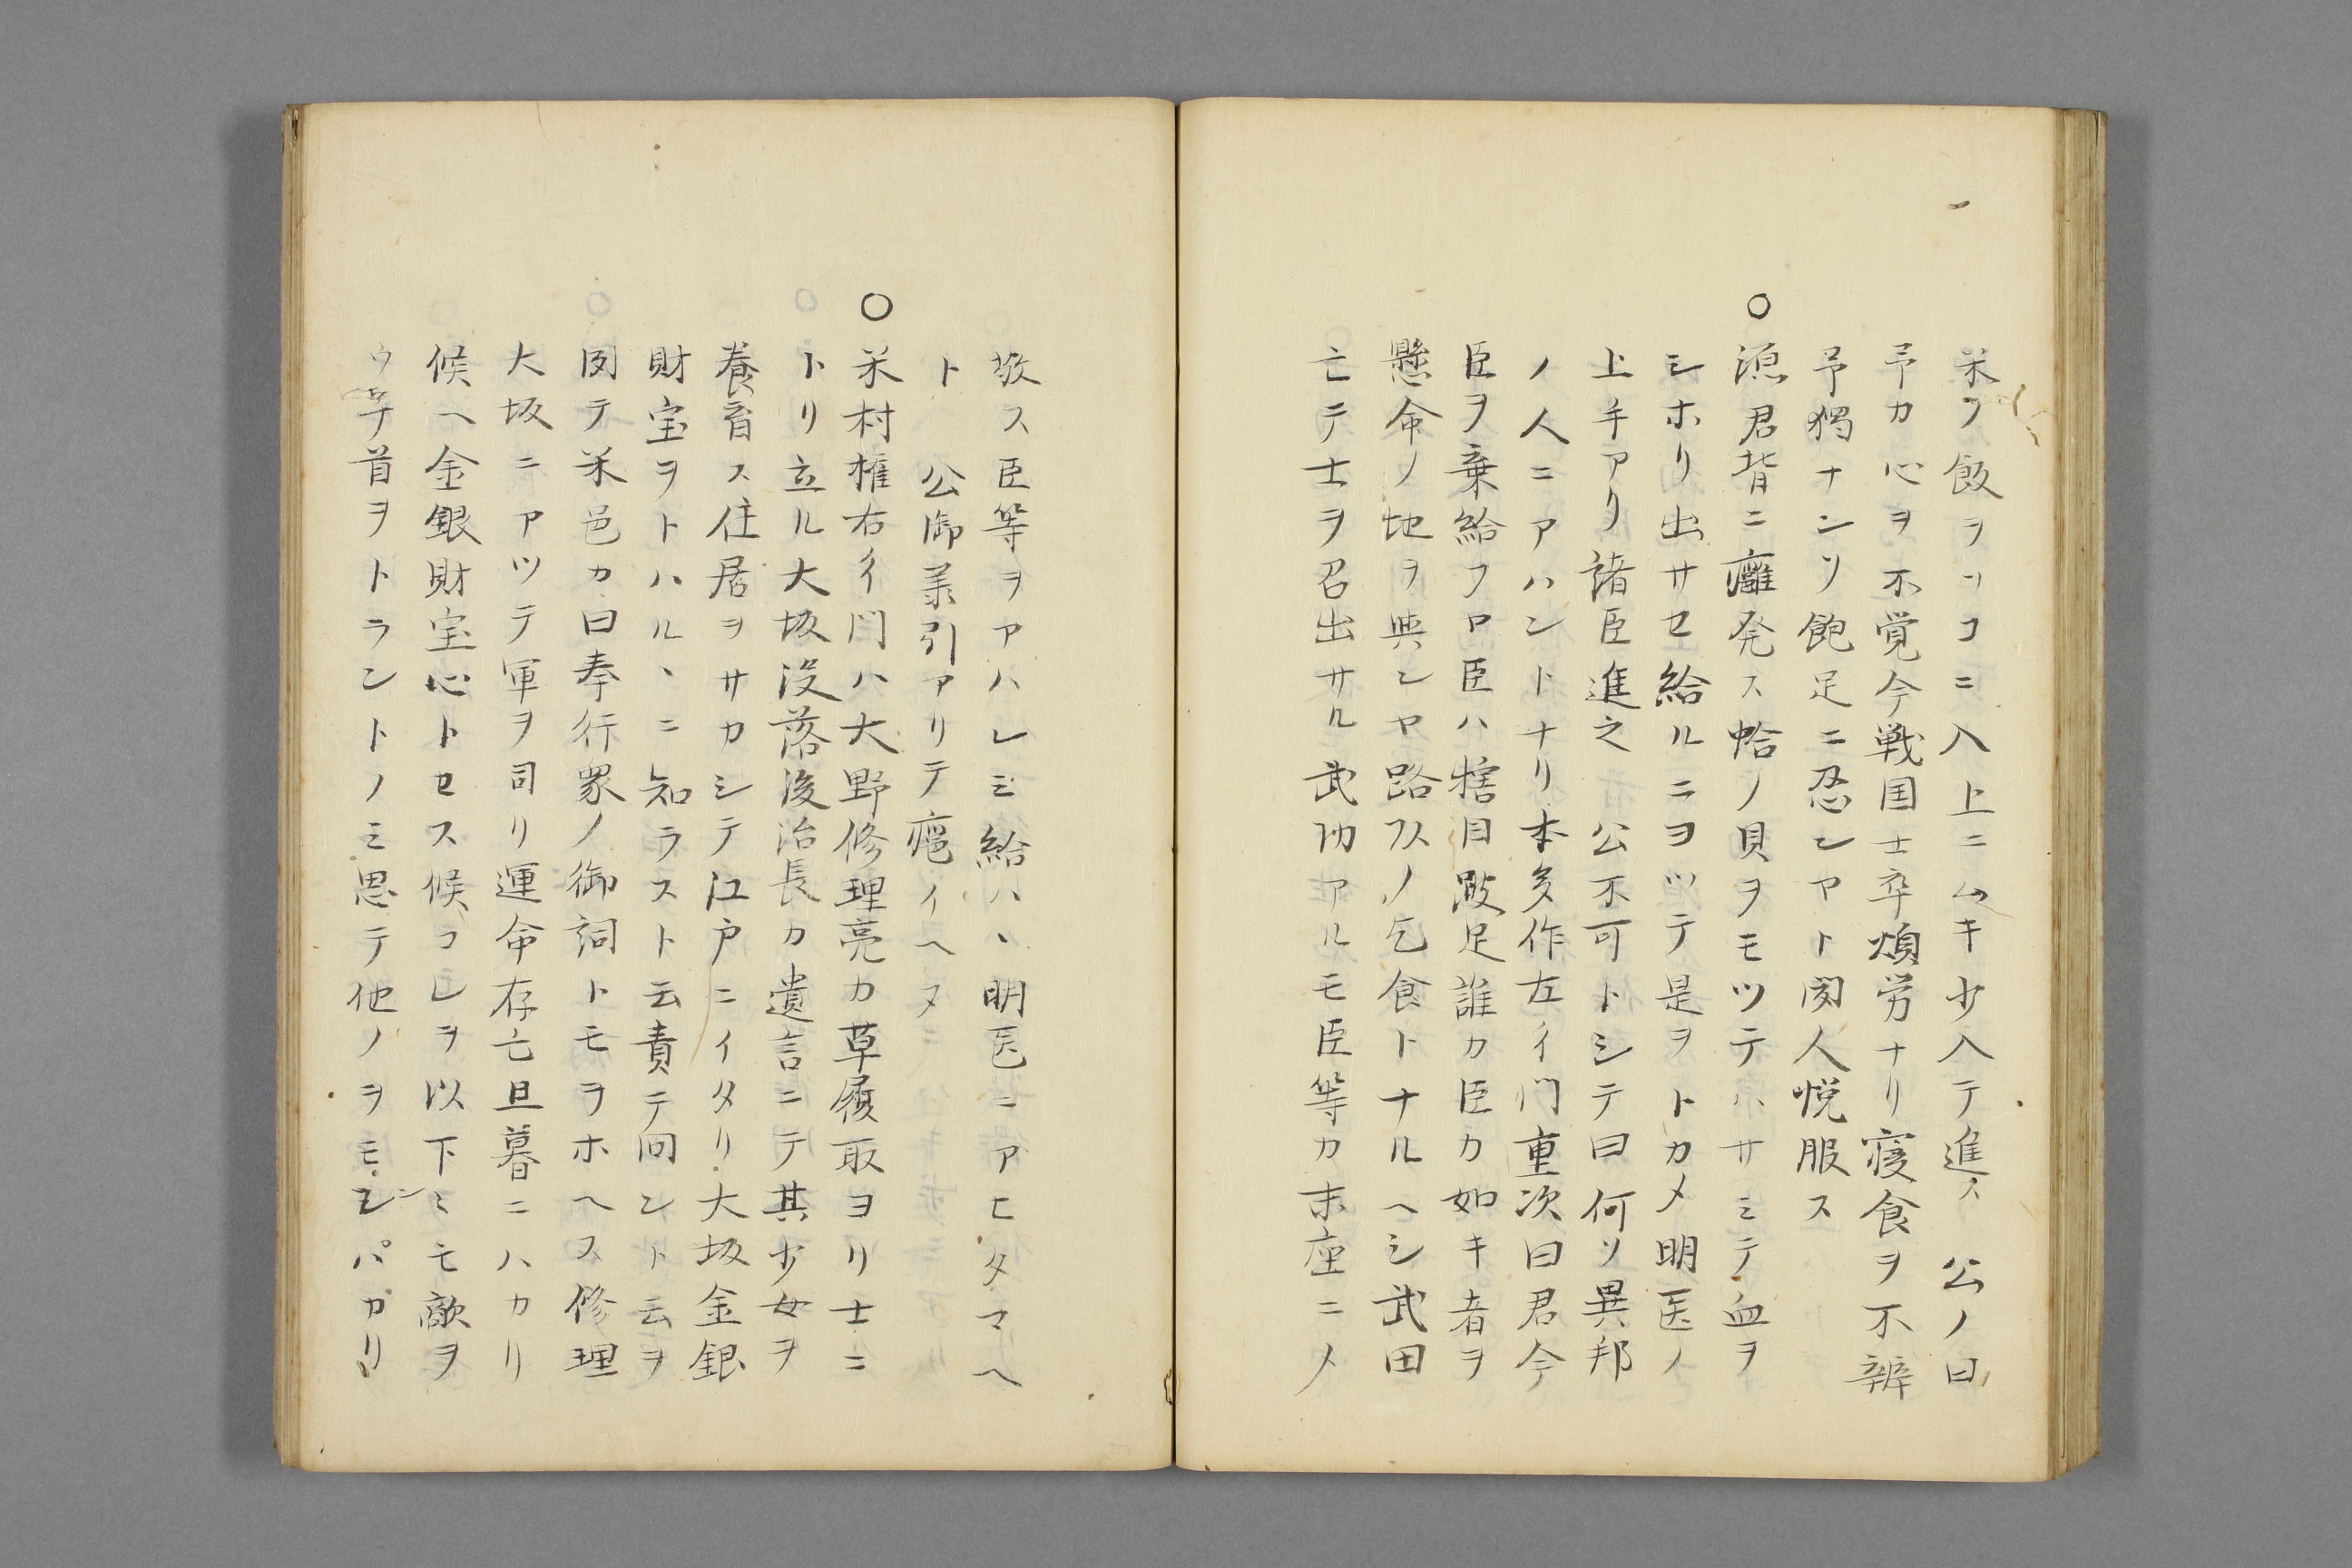 米ノ飯ヲソコニ入上ニムキ少入テ進ス　公ノ曰
予カ心ヲ不覚今戦国士卒煩労ナリ寝食ヲ不辨
予獨ナンソ飽足ニ忍シヤト関人悦服ス
○源君背ニ癰発ス蛤ノ貝ヲモツテハサミテ血ヲ
シホリ出サセ給ルニヨツテ是ヲトカメ明医ノ
上手アリ諸臣進之　公不可トシテ曰何ソ異邦
ノ人ニアハントナリ本多作左イ門重次曰君今
臣ヲ棄給フヤ臣ハ瞎目跛足誰カ臣カ如キ者ヲ
懸命ノ地ヲ與シヤ路次ノ乞食トナルヘシ武田
亡テ士ヲ召出サル武功アルモ臣等カ末座ニメ
敬ス臣等ヲアハレミ給ハヽ明医ニアヒタマヘ
ト　公御業引アリテ瘡イヘヌ
○米村権右イ門ハ大野修理亮カ草履取ヨリ士ニ
トリ立ル大坂没落後治長カ遺言ニテ其少女ヲ
養育ス住居ヲサカシテ江戸ニイタリ大坂金銀
財宝ヲトハルヽニ知ラスト云責テ問ントエヲ
聞テ米邑カ曰奉行衆ノ御詞トモヲホヘス修理
大坂ニアツテ軍ヲ司リ運命存亡旦暮ニハカリ
候ヘ金銀財宝心トセス候コレヲ以下ミモ敵ヲ
ウチ首ヲトラントノミ思テ他ノヲモンハカリ